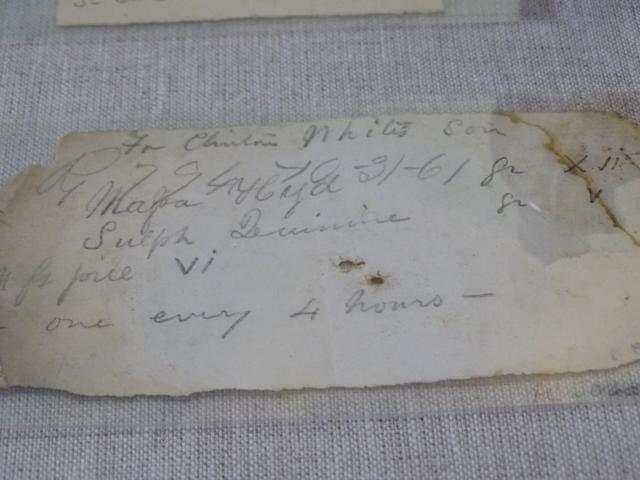 For Clinton White's Son
Massa Hyd gr xii
Sulph Quinine gr v
ft pice vi
one every 4 hours —